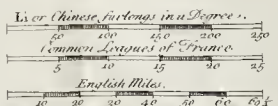 Li or Chinese furlongs in a Degree.
50 100 200 250
Common Leagues of France
5 10 15 20 25
English Miles.
10 20 30 40 50 60